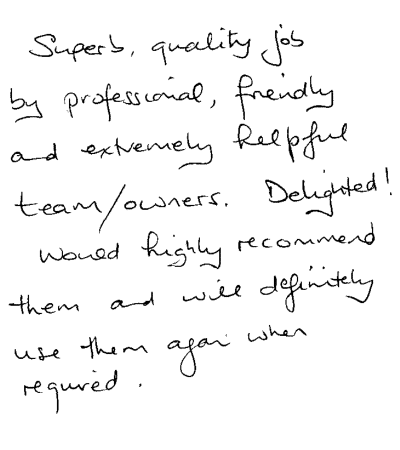 Superb, quality job
by professional, friendly
and extremely helpful
team/owners. Delighted!
Would highly recommend
them and will definitely
use them again when
required.